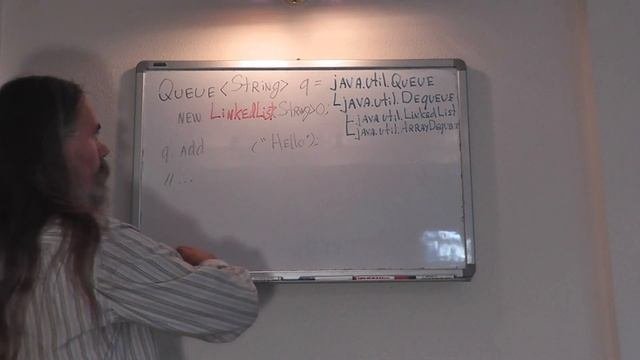 Queue <String> q =
new LinkedList String>();
q. add ("Hello");
// ...
java.util.Queue
java.util.Dequeue
java.util.LinkedList
java.util.ArrayDequeue